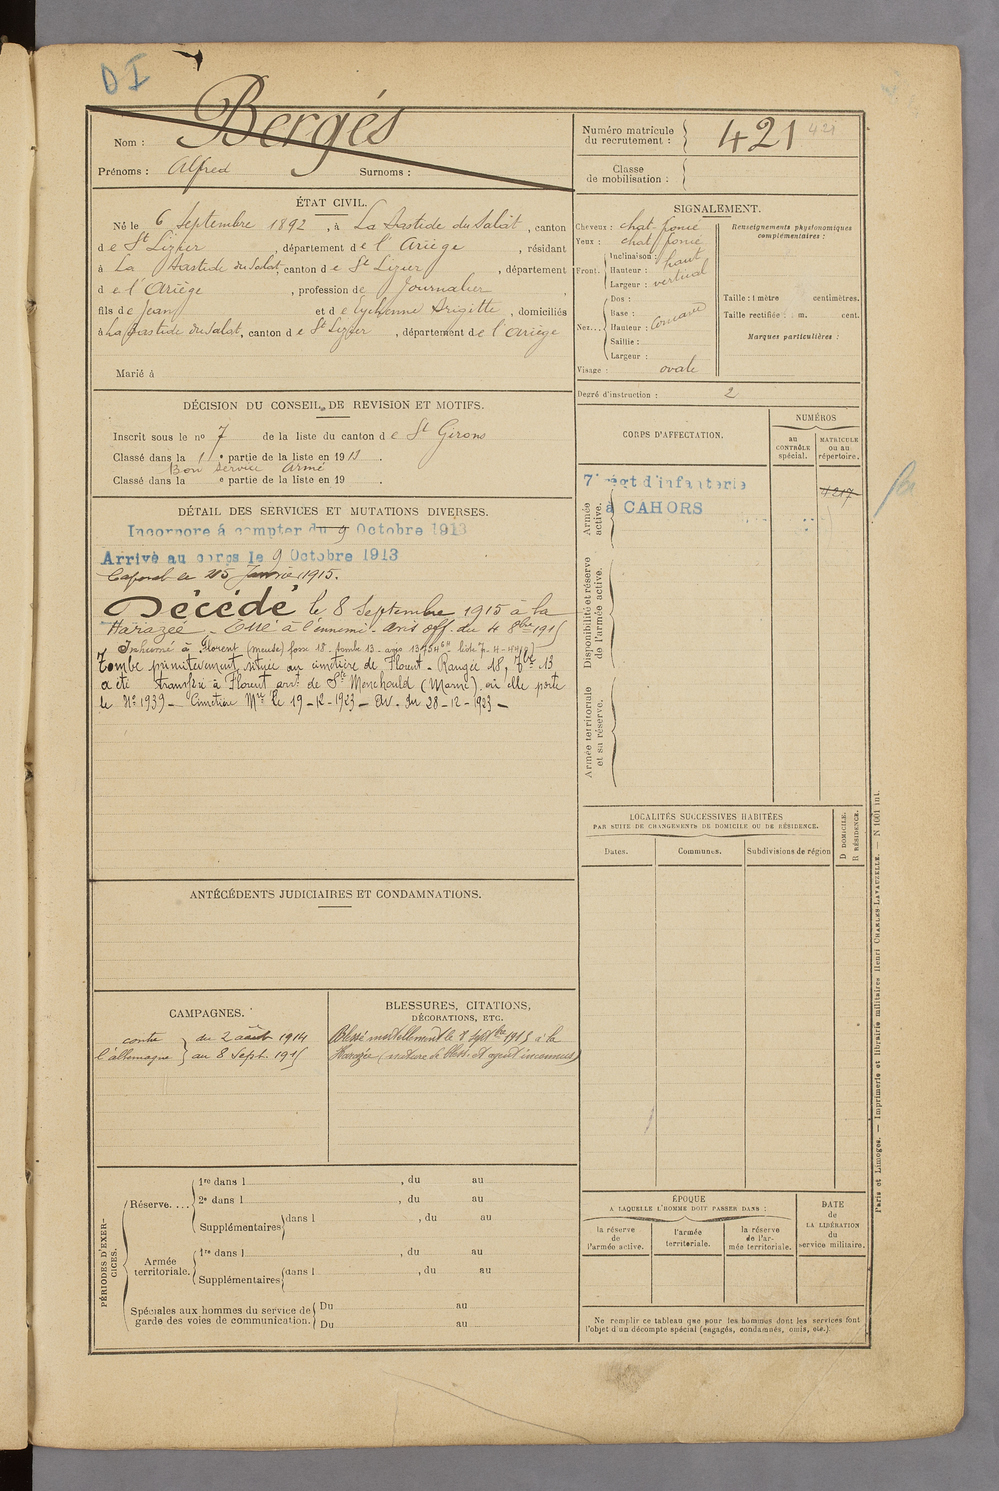 DI
Nom : Bergés
Prénoms : Alfred Surnoms :
Numéro matricule du recrutement : 421 421
Classe de mobilisation :
ÉTAT CIVIL.
Né le 6 Septembre 1892, à La Bastide du Salat, canton
de St Lizier, département de l'Ariège, résidant
à La Bastide du Salat, canton de St Lizier, département
de l'Ariège, profession de Journalier
fils de Jean et de Eychenne Brigitte, domiciliés
à La Bastide du Salat, canton de St Lizier, département de l'Ariège
Marié à
SIGNALEMENT.
Cheveux : chat. foncé
Yeux : chat foncé
Front. Inclinaison : haut
Hauteur :
Largeur : vertical
Nez... Dos :
Base :
Hauteur :
Saillie :
Largeur :
Visage : ovale
Renseignements physionomiques complémentaires :
Taille : 1 mètre centimètres.
Taille rectifiée : m. cent.
Marques particulières :
Degré d'instruction : 2
DÉCISION DU CONSEIL DE REVISION ET MOTIFS.
Inscrit sous le no 7 de la liste du canton de St Girons
Classé dans la 1e partie de la liste en 1913.
Bon service armé
Classé dans la e partie de la liste en 19 .
DÉTAIL DES SERVICES ET MUTATIONS DIVERSES.
Incorporé à compter du 9 Octobre 1913
Arrivé au corps le 9 Octobre 1913
Caporal le 25 Janvier 1915.
Décédé le 8 Septembre 1915 à la
Harazée - Tué à l'ennemi - avis off. du 4 8bre 1915
Inhumé à Florent (meuse) fosse 18 - tombe 13 - avis
Tombe primitivement située au cimetière de Florent - Rangée 18, Tbe 13
a été transférée à Florent arrt de Ste Menehould (Marne) où elle porte
le No 1939 - Cimetière Mre le 19-12-1923 - Av. du 28-12-1923 -
CORPS D'AFFECTATION.
NUMÉROS
au CONTRÔLE spécial.
MATRICULE ou au répertoire.
Armée active.
7e régt d'infanterie
à CAHORS
4217
Disponibilité et réserve de l'armée active.
Armée territoriale et sa réserve.
LOCALITÉS SUCCESSIVES HABITÉES
PAR SUITE DE CHANGEMENTS DE DOMICILE OU DE RÉSIDENCE.
Dates. Communes. Subdivisions de région
D DOMICILE.
R RÉSIDENCE.
ANTÉCÉDENTS JUDICIAIRES ET CONDAMNATIONS.
CAMPAGNES.
contre l'allemagne du 2 août 1914
au 8 Sept. 1915
BLESSURES, CITATIONS,
DÉCORATIONS, ETC.
Blessé mortellement le 8 Septbre 1915 à la
Harazée (nature de bless. et agent inconnus)
PÉRIODES D'EXERCICES.
Réserve.... 1re dans l , du au
2e dans l , du au
Supplémentaires dans l , du au
Armée territoriale. 1re dans l , du au
Supplémentaires dans l , du au
Spéciales aux hommes du service de garde des voies de communication. Du au
Du au
ÉPOQUE
A LAQUELLE L'HOMME DOIT PASSER DANS :
la réserve de l'armée active.
l'armée territoriale.
la réserve de l'armée territoriale.
DATE de LA LIBÉRATION du service militaire.
Ne remplir ce tableau que pour les hommes dont les services font
l'objet d'un décompte spécial (engagés, condamnés, omis, etc.).
Paris et Limoges. — Imprimerie et librairie militaires Henri CHARLES-LAVAUZELLE. — N 1001 int.